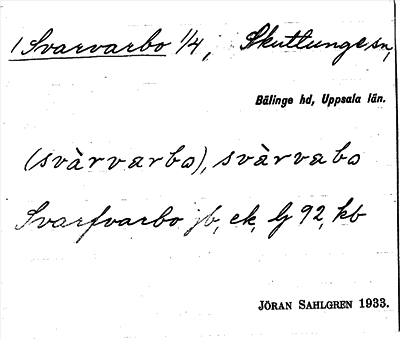 1 Svarvarbo 1/4, Skuttunge sn,
Bälinge hd, Uppsala län.
(svàrvarbo), svàrvabo
Svarfvarbo jb, ek, lj 92, kb
JÖRAN SAHLGREN 1933.